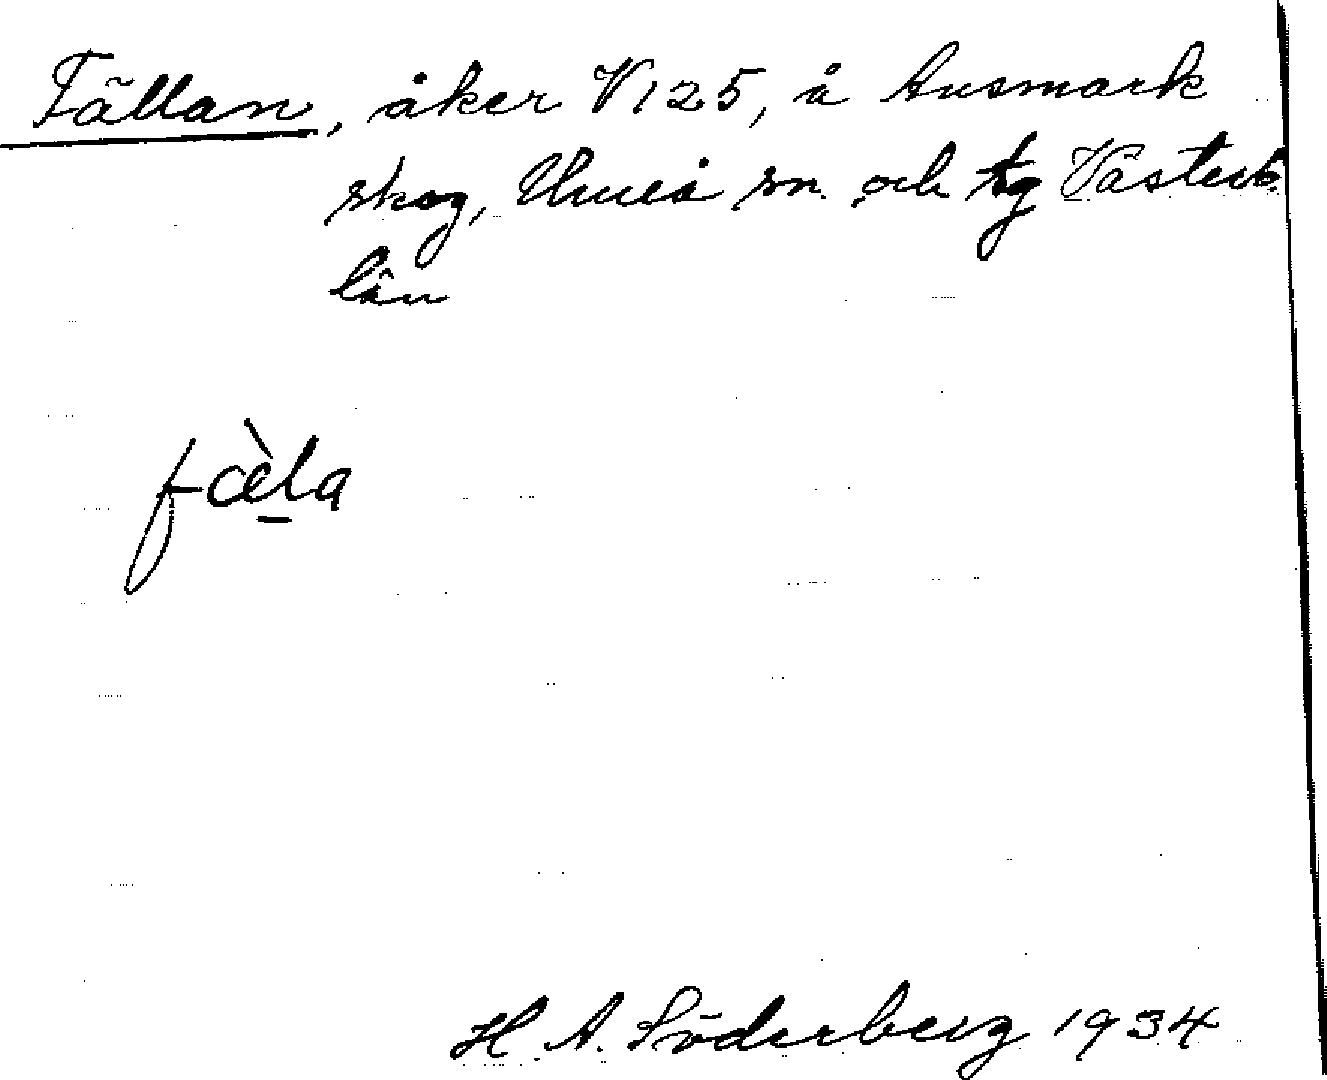 Fällan, åker V125, å Ansmark
skog, Umeå sn och tg Västerb.
län
fæ̀l̠a
H. A. Söderberg 1934